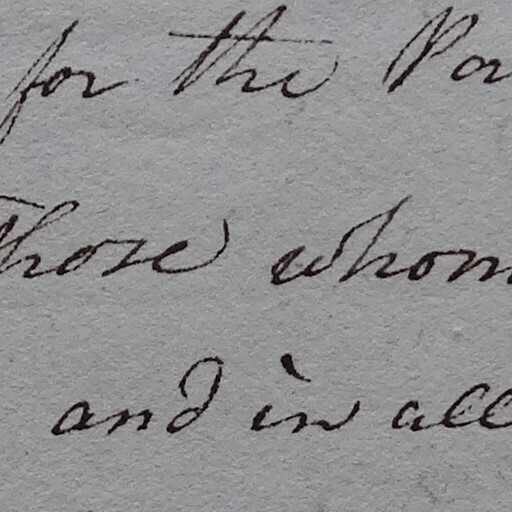 for the Por
Those whom
and in all